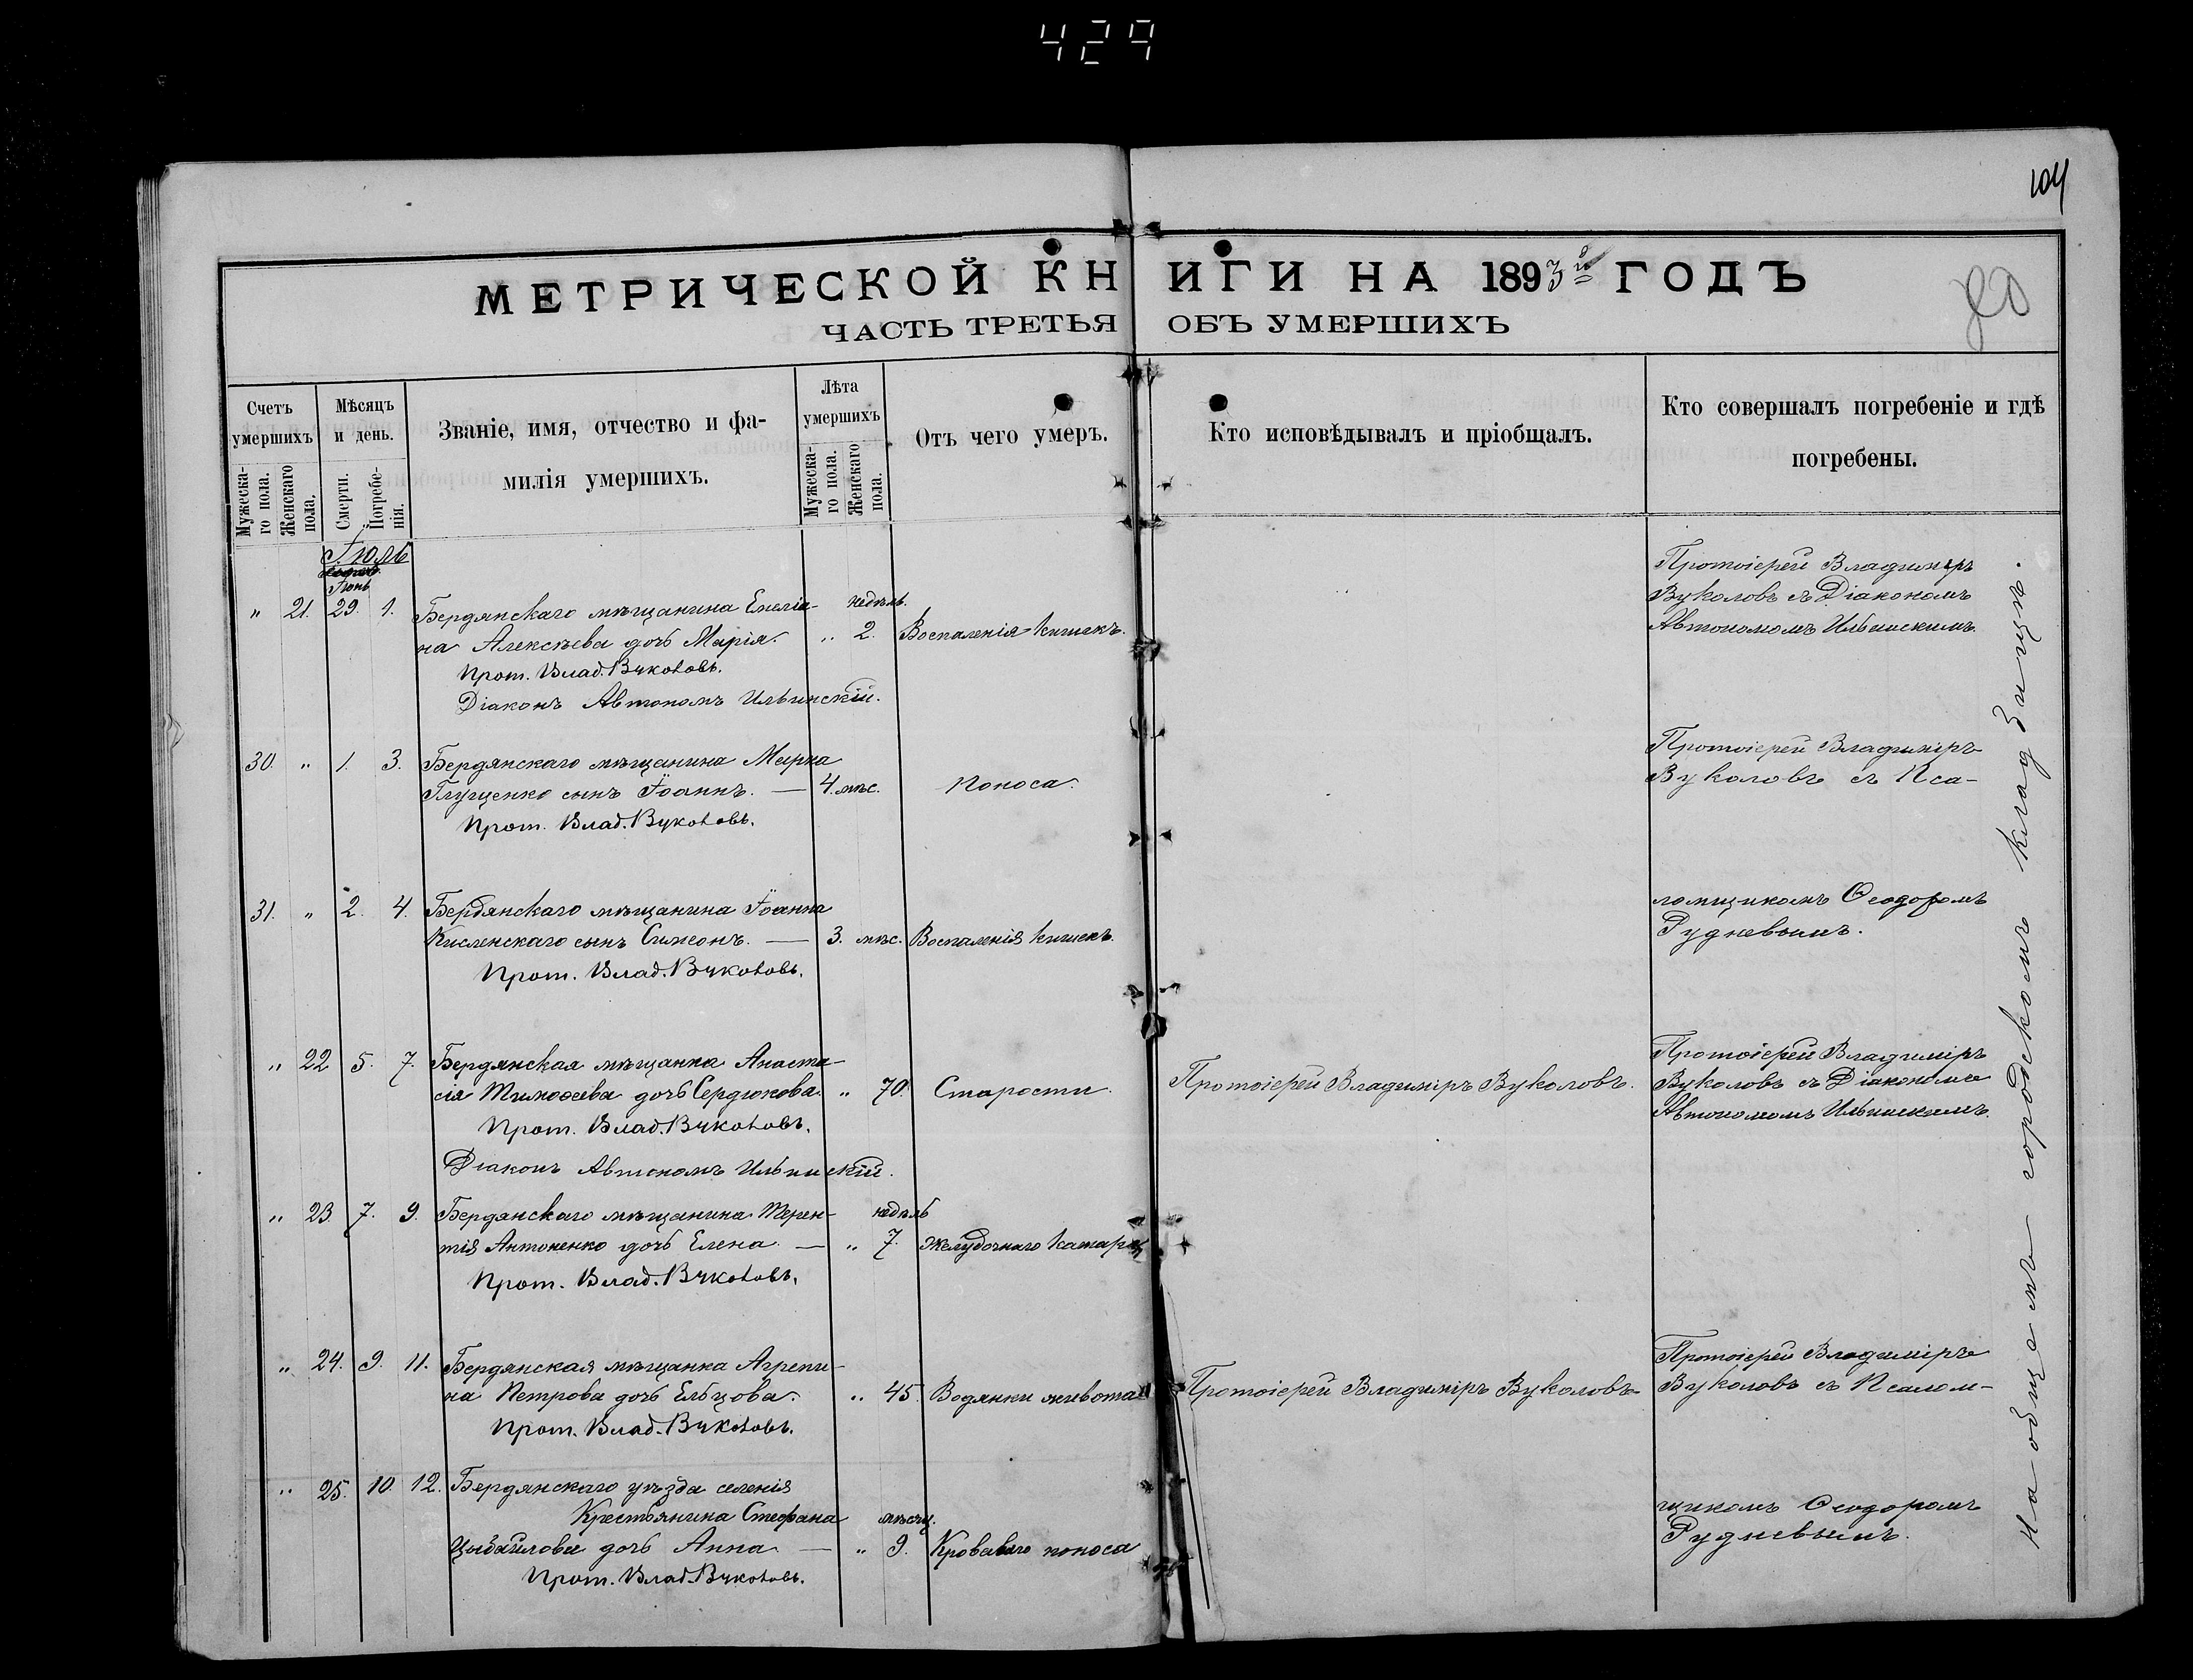 429
104
80
МЕТРИЧЕСКОЙ КНИГИ НА 1893й ГОДЪ
ЧАСТЬ ТРЕТЬЯ ОБЪ УМЕРШИХЪ
Счетъ умершихъ
Мужеска-го пола.
Женскаго пола.
Мѣсяцъ и день.
Смерти.
Погребе-нія.
Званіе, имя, отчество и фа-
милія умершихъ.
Лѣта умершихъ
Мужеска-го пола.
Женскаго пола.
Отъ чего умеръ.
Кто исповѣдывалъ и пріобщалъ.
Кто совершалъ погребеніе и гдѣ
погребены.
Іюль
Іюнь
„ 21. 29. 1. Бердянскаго мѣщанина Емеліа- недѣль.
на Алексѣева дочь Марія. „ 2. Воспаленія кишекъ.
Прот. Влад. Вуколовъ.
Діаконъ Автономъ Ильинскій.
Протоіерей Владиміръ
Вуколовъ съ Діакономъ
Автономомъ Ильинскимъ.
30. „ 1. 3. Бердянскаго мѣщанина Марка
Глущенко сынъ Іоаннъ. — 4. мѣс. Поноса.
Прот. Влад. Вуколовъ.
Протоіерей Владиміръ
Вуколовъ съ Пса-
31. „ 2. 4. Бердянскаго мѣщанина Іоанна
Кисленскаго сынъ Симеонъ. — 3. мѣс. Воспаленія кишекъ.
Прот. Влад. Вуколовъ.
ломщикомъ Ѳеодоромъ
Рудневымъ.
„ 22 5. 7. Бердянская мѣщанка Анаста-
сія Тимоѳеева дочь Сердюкова. „ 70. Старости. Протоіерей Владиміръ Вуколовъ.
Прот. Влад. Вуколовъ.
Діаконъ Автономъ Ильинскій.
Протоіерей Владиміръ
Вуколовъ съ Діакономъ
Автономомъ Ильинскимъ.
„ 23. 7. 9. Бердянскаго мѣщанина Терен- недѣль
тія Антоненко дочь Елена. — „ 7. Желудочнаго катара
Прот. Влад. Вуколовъ.
„ 24. 9. 11. Бердянская мѣщанка Агрепи-
на Петрова дочь Ельцова. „ 45. Водянки живота Протоіерей Владиміръ Вуколовъ
Прот. Влад. Вуколовъ.
Протоіерей Владиміръ
Вуколовъ съ Псалом-
„ 25. 10. 12. Бердянскаго уѣзда селенія
Крестьянина Стефана мѣсяц.
дочь Анна — „ 9. Кроваваго поноса
Прот. Влад. Вуколовъ.
щикомъ Ѳеодоромъ
Рудневымъ.
На общемъ городскомъ кладбищѣ.